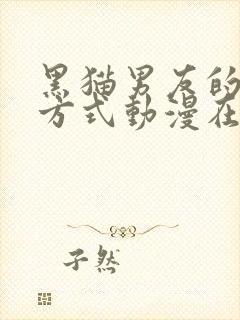 黑猫男友的
方式動漫在
孑然